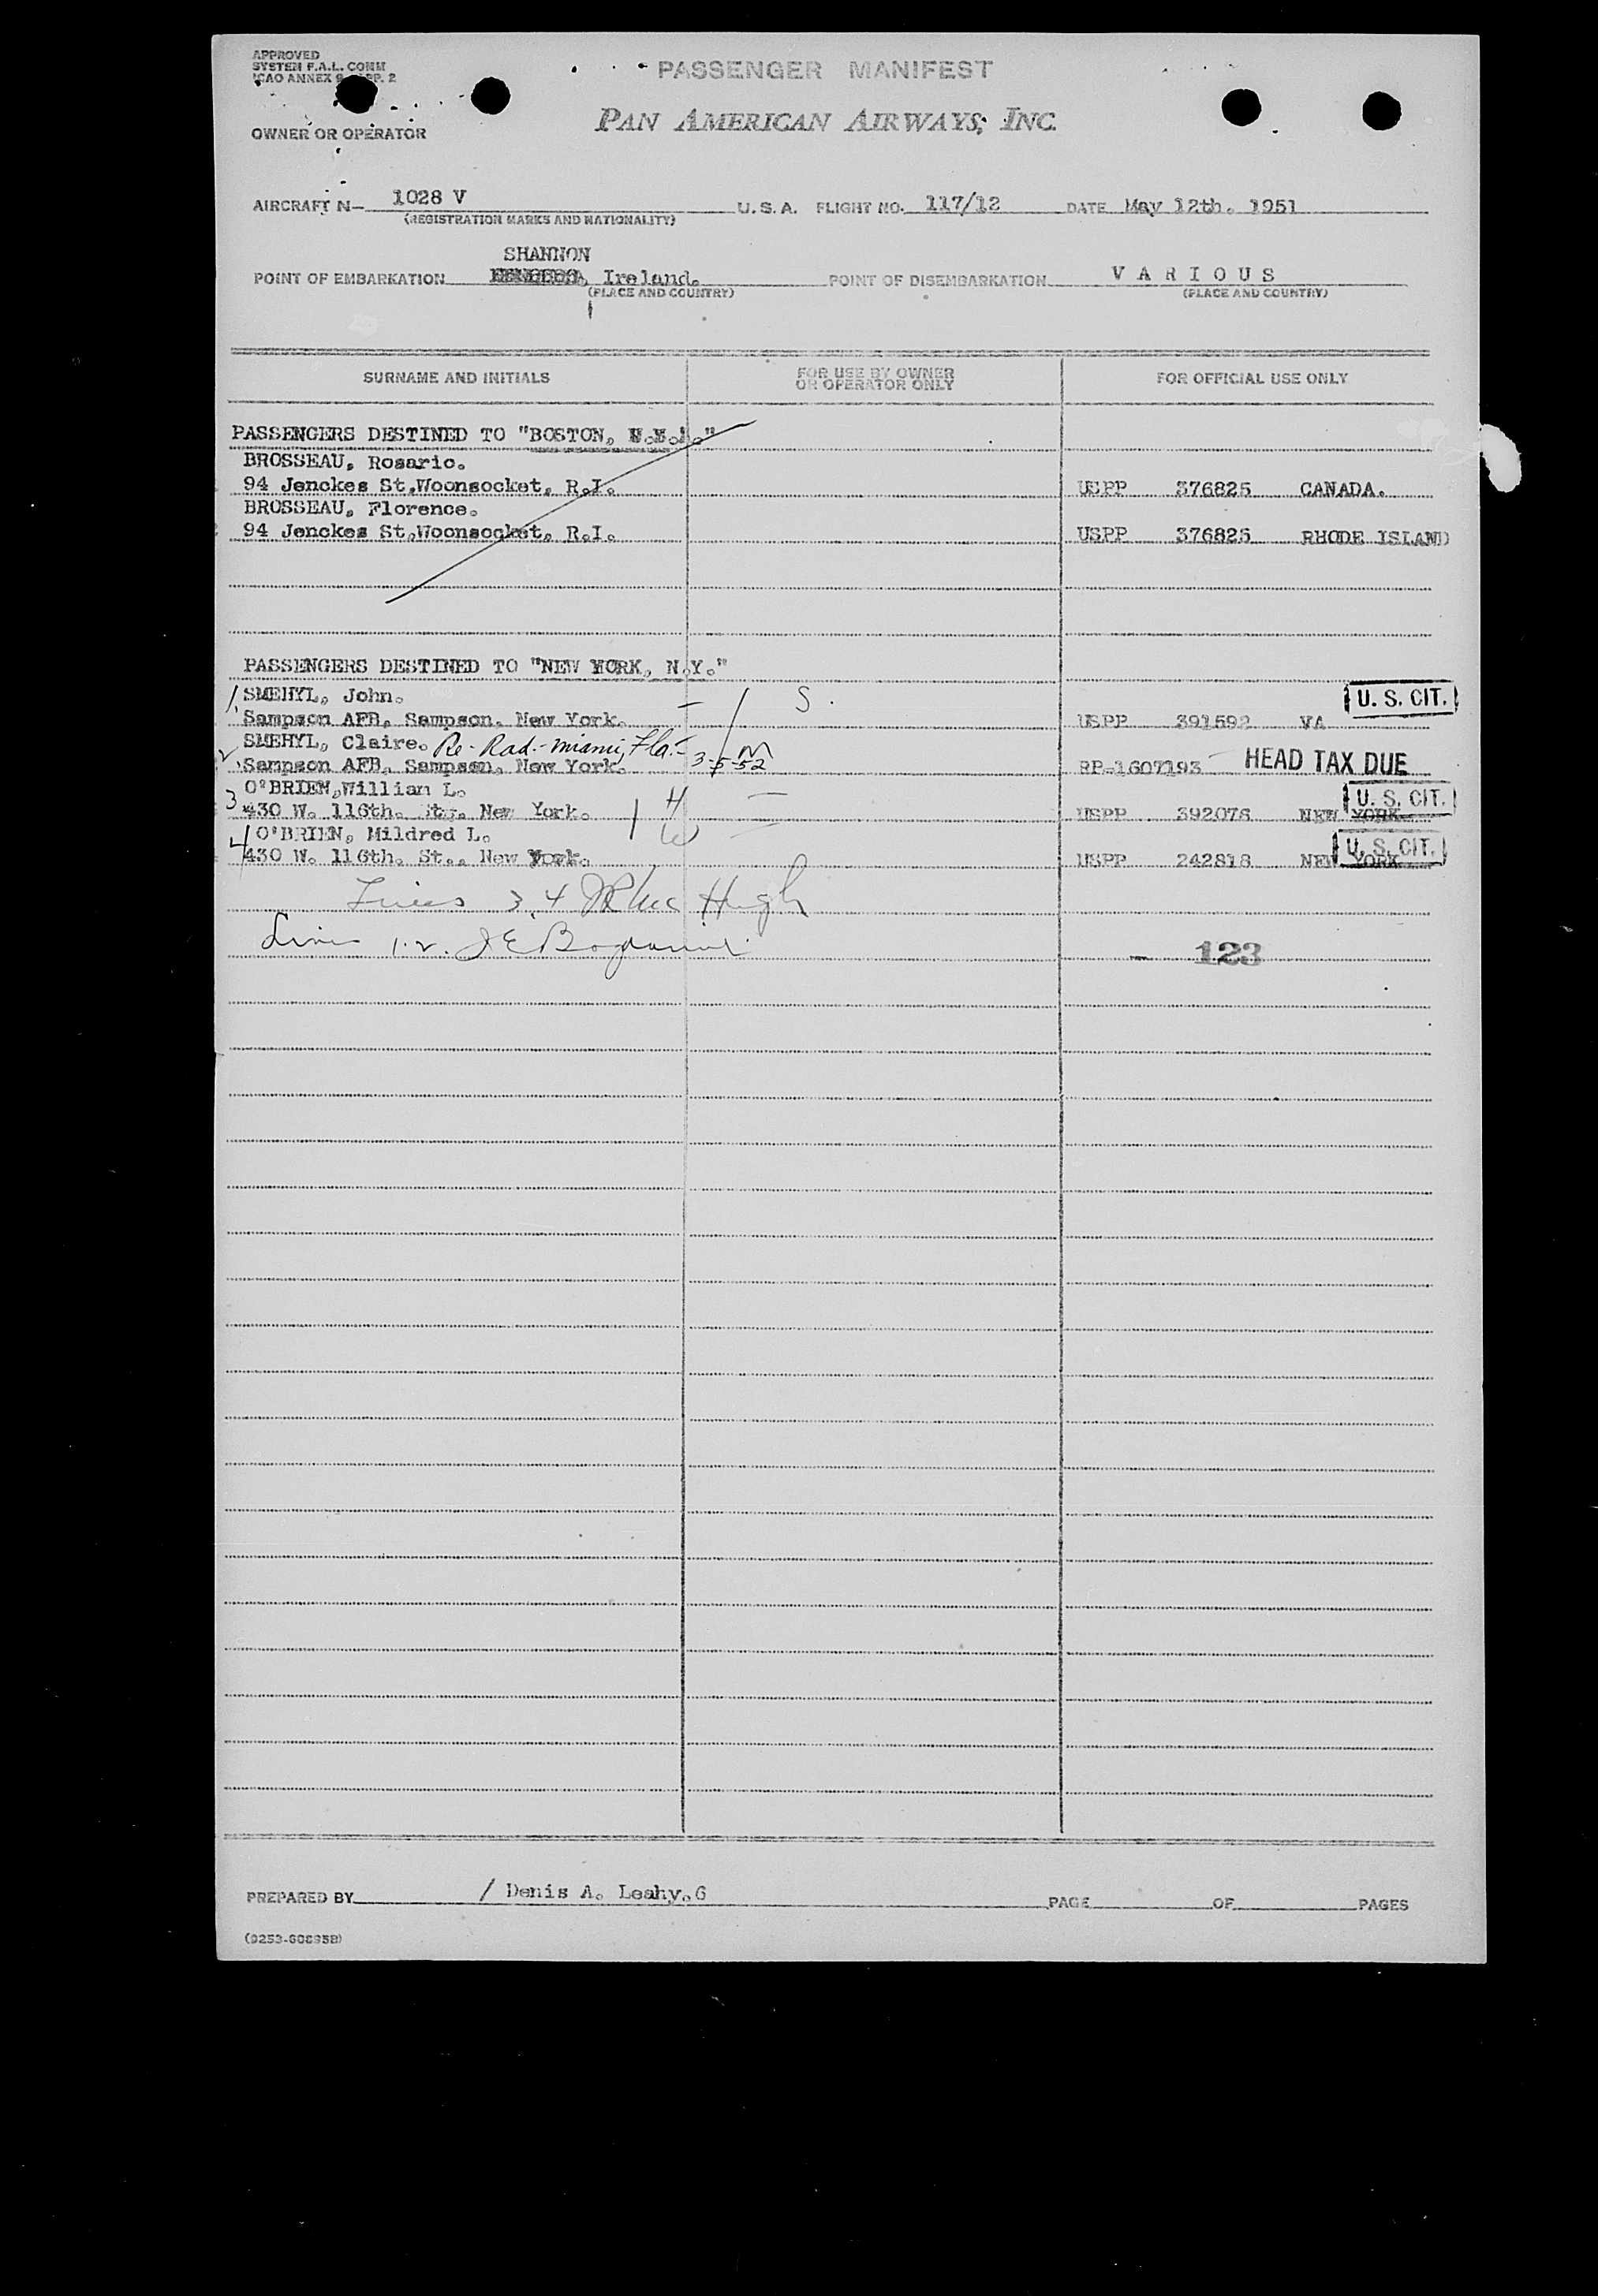 APPROVED
SYSTEM F.A.L. COMM
ICAO ANNEX 9 APP. 2
PASSENGER MANIFEST
PAN AMERICAN AIRWAYS, INC.
OWNER OR OPERATOR
AIRCRAFT N- 1028 V U.S.A. FLIGHT NO. 117/12 DATE May 12th. 1951
(REGISTRATION MARKS AND NATIONALITY)
SHANNON
POINT OF EMBARKATION Ireland. POINT OF DISEMBARKATION V A R I O U S
(PLACE AND COUNTRY) (PLACE AND COUNTRY)
SURNAME AND INITIALS FOR USE BY OWNER OR OPERATOR ONLY FOR OFFICIAL USE ONLY
PASSENGERS DESTINED TO "BOSTON,
BROSSEAU, Rosario.
94 Jenckes St.Woonsocket, R.I. USPP 376825 CANADA.
BROSSEAU, Florence.
94 Jenckes St.Woonsocket, R.I. USPP 376825 RHODE ISLAND
PASSENGERS DESTINED TO "NEW YORK, N.Y."
1. SMEHYL, John. S. U. S. CIT.
Sampson AFB, Sampson. New York. USPP 391592 VA
2. SMEHYL, Claire. Re-Rad.-Miami, Fla.- 3-5-52 M
Sampson AFB, Sampson, New York. RP-1607193 HEAD TAX DUE
3 O'BRIEN,William L. H U. S. CIT.
430 W. 116th. St., New York. USPP 392076 NEW YORK
4 O'BRIEN, Mildred L. W U. S. CIT.
430 W. 116th. St., New York. USPP 242818 NEW YORK
Lines 3,4 Mc Hugh
Lines 1.2. J E
123
PREPARED BY / Denis A. Leahy.G PAGE OF PAGES
(0253-60895B)